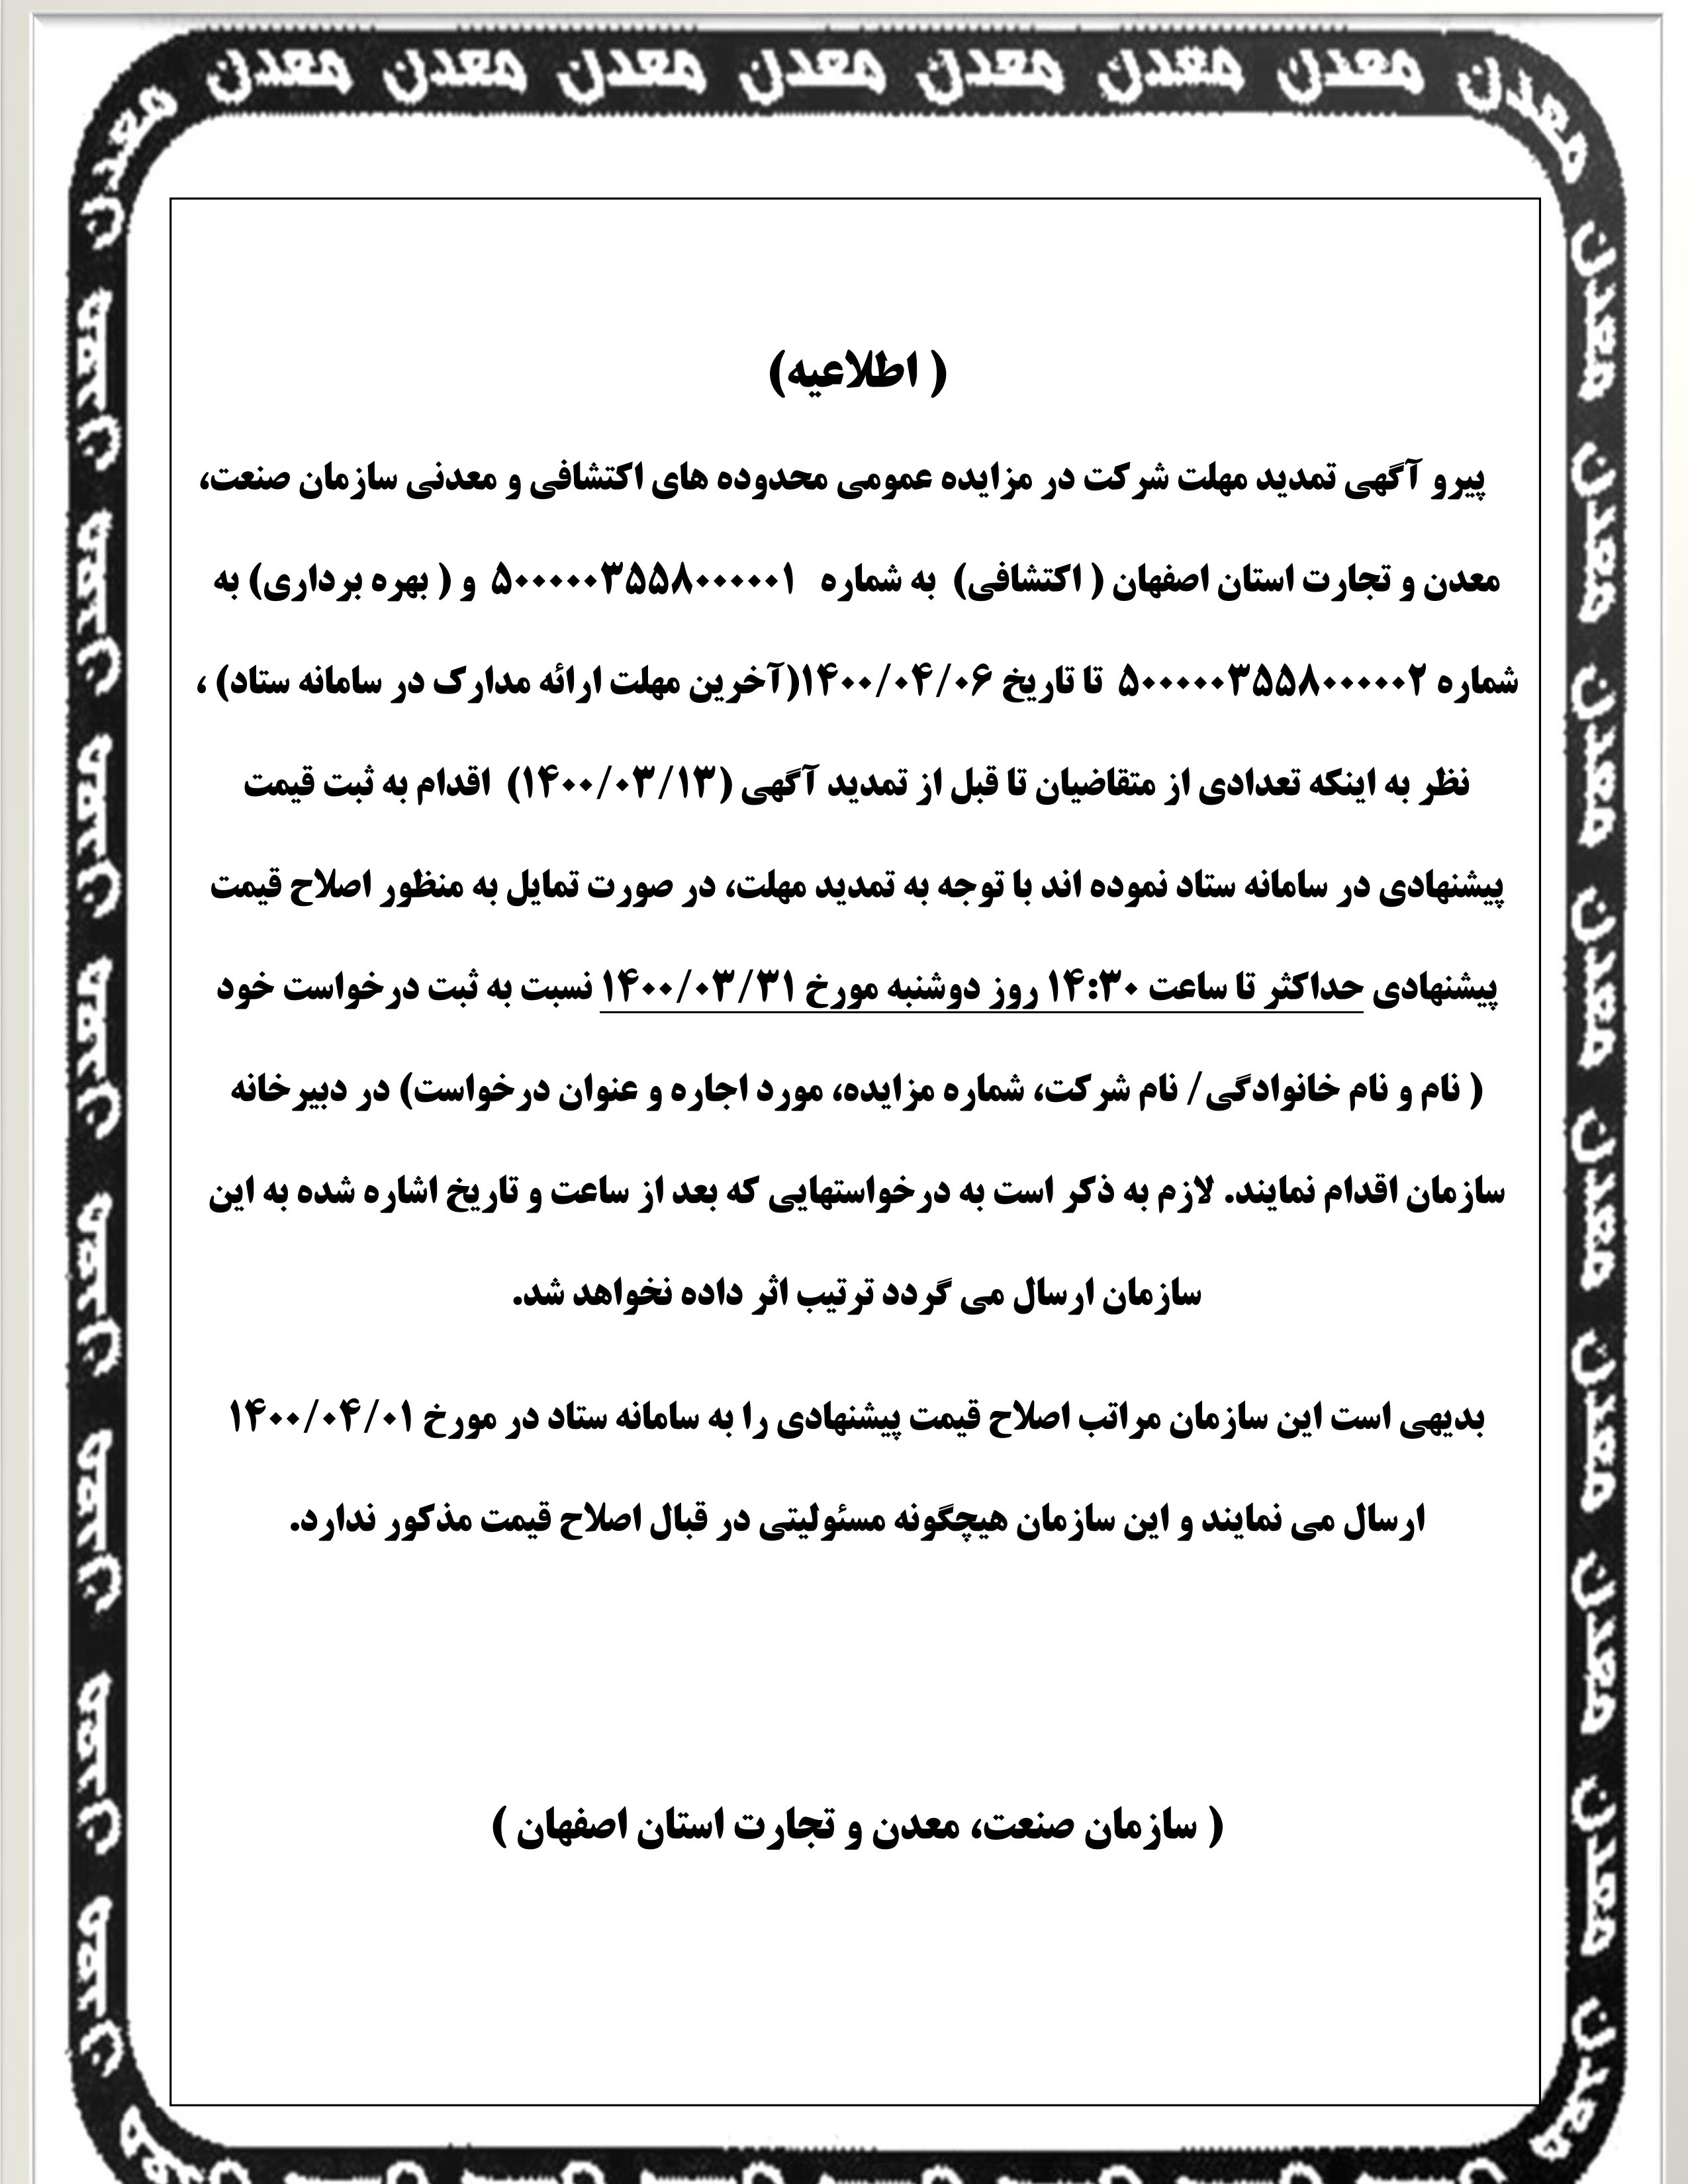 معدن معدن معدن معدن معدن معدن معدن معدن معدن
( اطلاعیه)
پیرو آگهی تمدید مهلت شرکت در مزایده عمومی محدوده های اکتشافی و معدنی سازمان صنعت،
معدن و تجارت استان اصفهان ( اکتشافی) به شماره ۵۰۰۰۰۰۳۵۵۸۰۰۰۰۰۱ و ( بهره برداری) به
شماره ۵۰۰۰۰۰۳۵۵۸۰۰۰۰۰۲ تا تاریخ ۱۴۰۰/۰۴/۰۶(آخرین مهلت ارائه مدارک در سامانه ستاد) ،
نظر به اینکه تعدادی از متقاضیان تا قبل از تمدید آگهی (۱۴۰۰/۰۳/۱۳) اقدام به ثبت قیمت
پیشنهادی در سامانه ستاد نموده اند با توجه به تمدید مهلت، در صورت تمایل به منظور اصلاح قیمت
پیشنهادی حداکثر تا ساعت ۱۴:۳۰ روز دوشنبه مورخ ۱۴۰۰/۰۳/۳۱ نسبت به ثبت درخواست خود
( نام و نام خانوادگی/ نام شرکت، شماره مزایده، مورد اجاره و عنوان درخواست) در دبیرخانه
سازمان اقدام نمایند. لازم به ذکر است به درخواستهایی که بعد از ساعت و تاریخ اشاره شده به این
سازمان ارسال می گردد ترتیب اثر داده نخواهد شد.
بدیهی است این سازمان مراتب اصلاح قیمت پیشنهادی را به سامانه ستاد در مورخ ۱۴۰۰/۰۴/۰۱
ارسال می نمایند و این سازمان هیچگونه مسئولیتی در قبال اصلاح قیمت مذکور ندارد.
( سازمان صنعت، معدن و تجارت استان اصفهان )